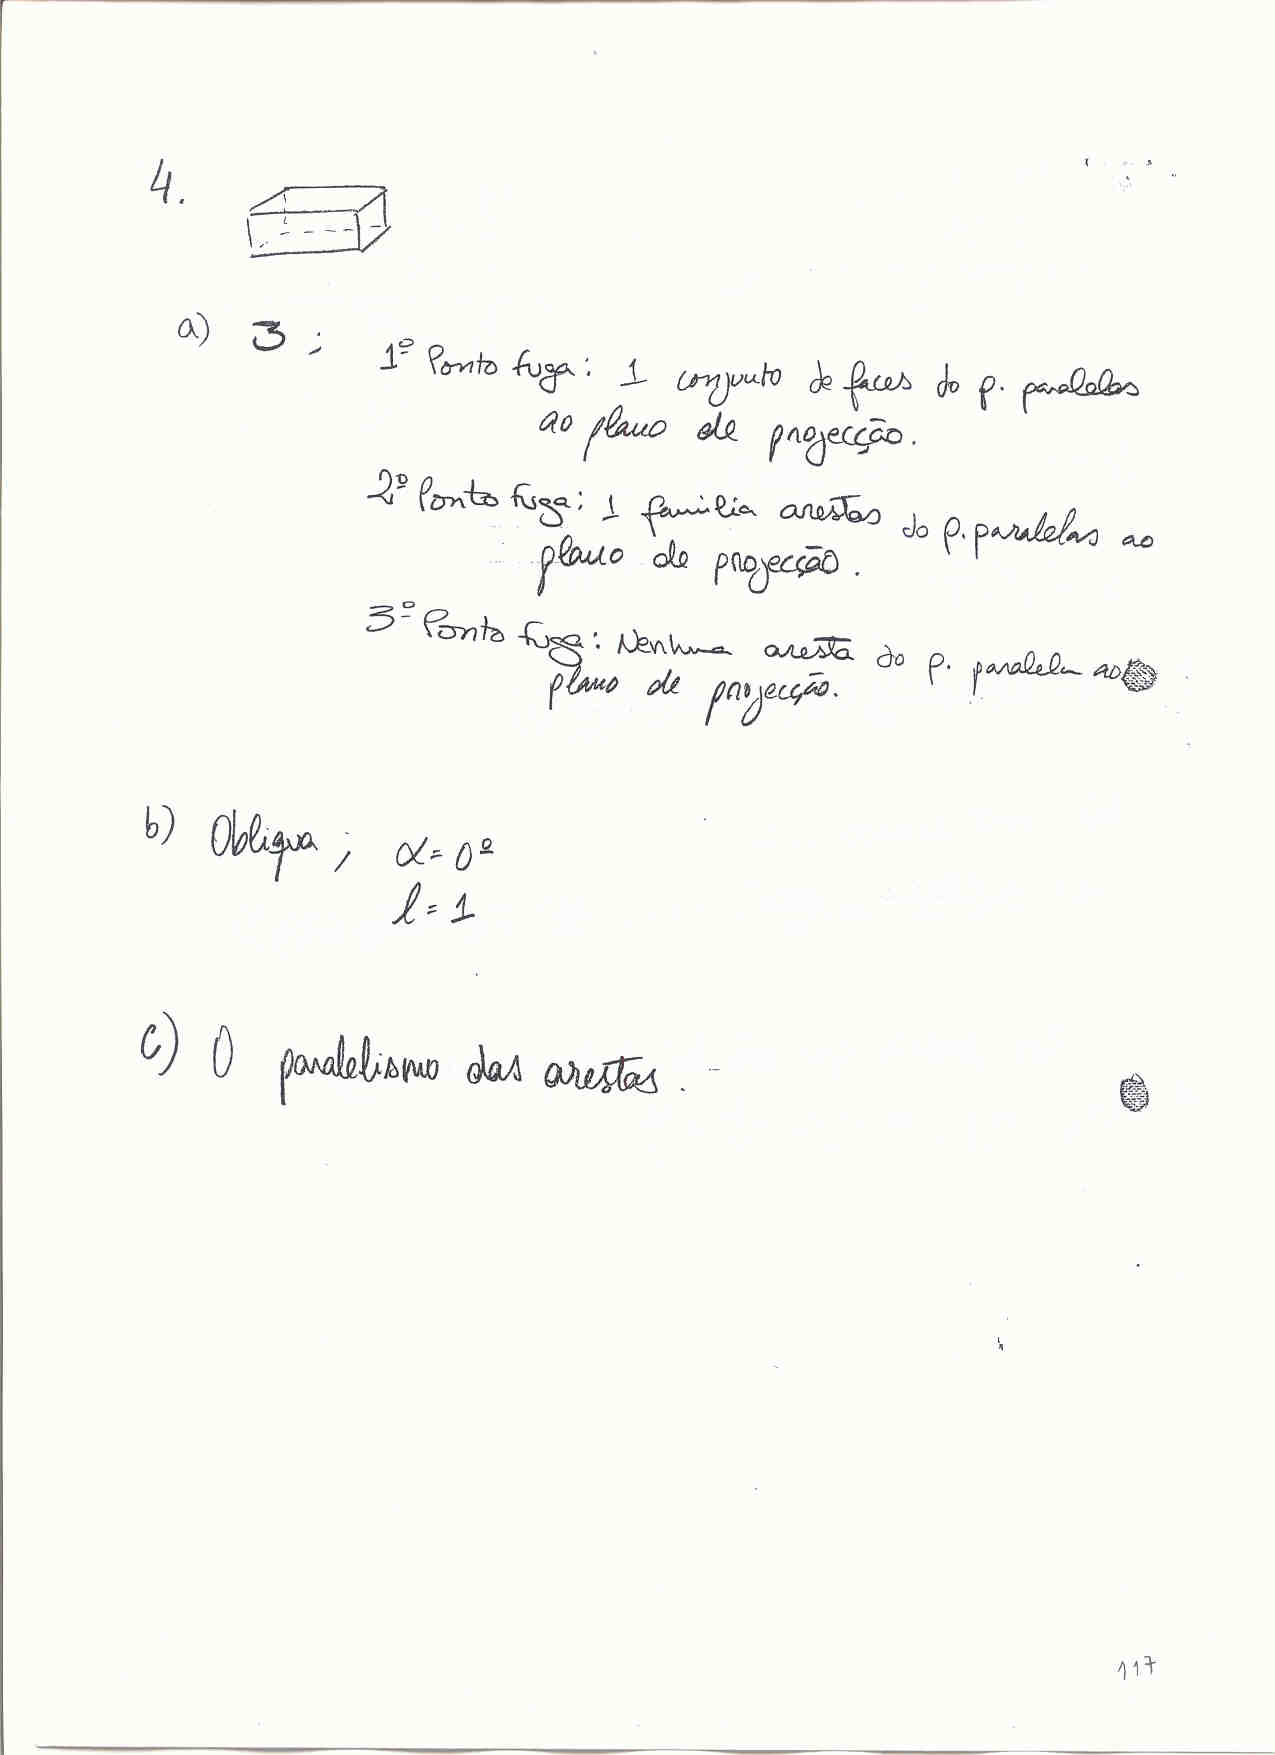 4.
a) 3 ; 1º Ponto fuga: 1 conjunto de faces do p. paralelas
ao plano de projecção.
2º Ponto fuga: 1 familia arestas do p. paralelas ao
plano de projecção.
3º Ponto fuga: Nenhuma aresta do p. paralela ao
plano de projecção.
b) Obliqua ; α = 0º
l = 1
c) O paralelismo das arestas.
117